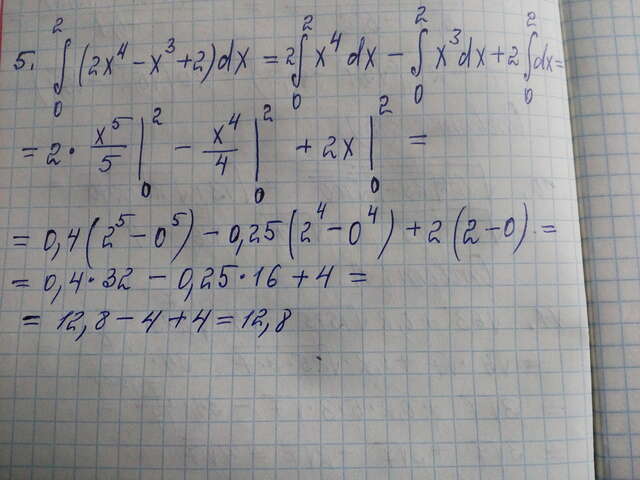 5. ∫₀² (2x⁴ - x³ + 2) dx = 2∫₀² x⁴ dx - ∫₀² x³ dx + 2∫₀² dx =
= 2 · x⁵/5 |₀² - x⁴/4 |₀² + 2x |₀² =
= 0,4 (2⁵ - 0⁵) - 0,25 (2⁴ - 0⁴) + 2 (2 - 0) =
= 0,4 · 32 - 0,25 · 16 + 4 =
= 12,8 - 4 + 4 = 12,8